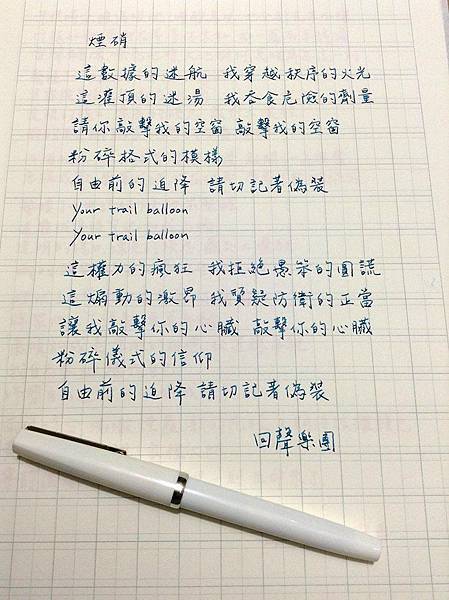 煙硝
這數據的迷航 我穿越秩序的火光
這灌頂的迷湯 我吞食危險的劑量
請你敲擊我的空窗 敲擊我的空窗
粉碎格式的模樣
自由前的迫降 請切記著偽裝
Your trail balloon
Your trail balloon
這權力的瘋狂 我拒絕愚笨的圓謊
這煽動的激昂 我質疑防衛的正當
讓我敲擊你的心臟 敲擊你的心臟
粉碎儀式的信仰
自由前的迫降 請切記著偽裝
回聲樂團